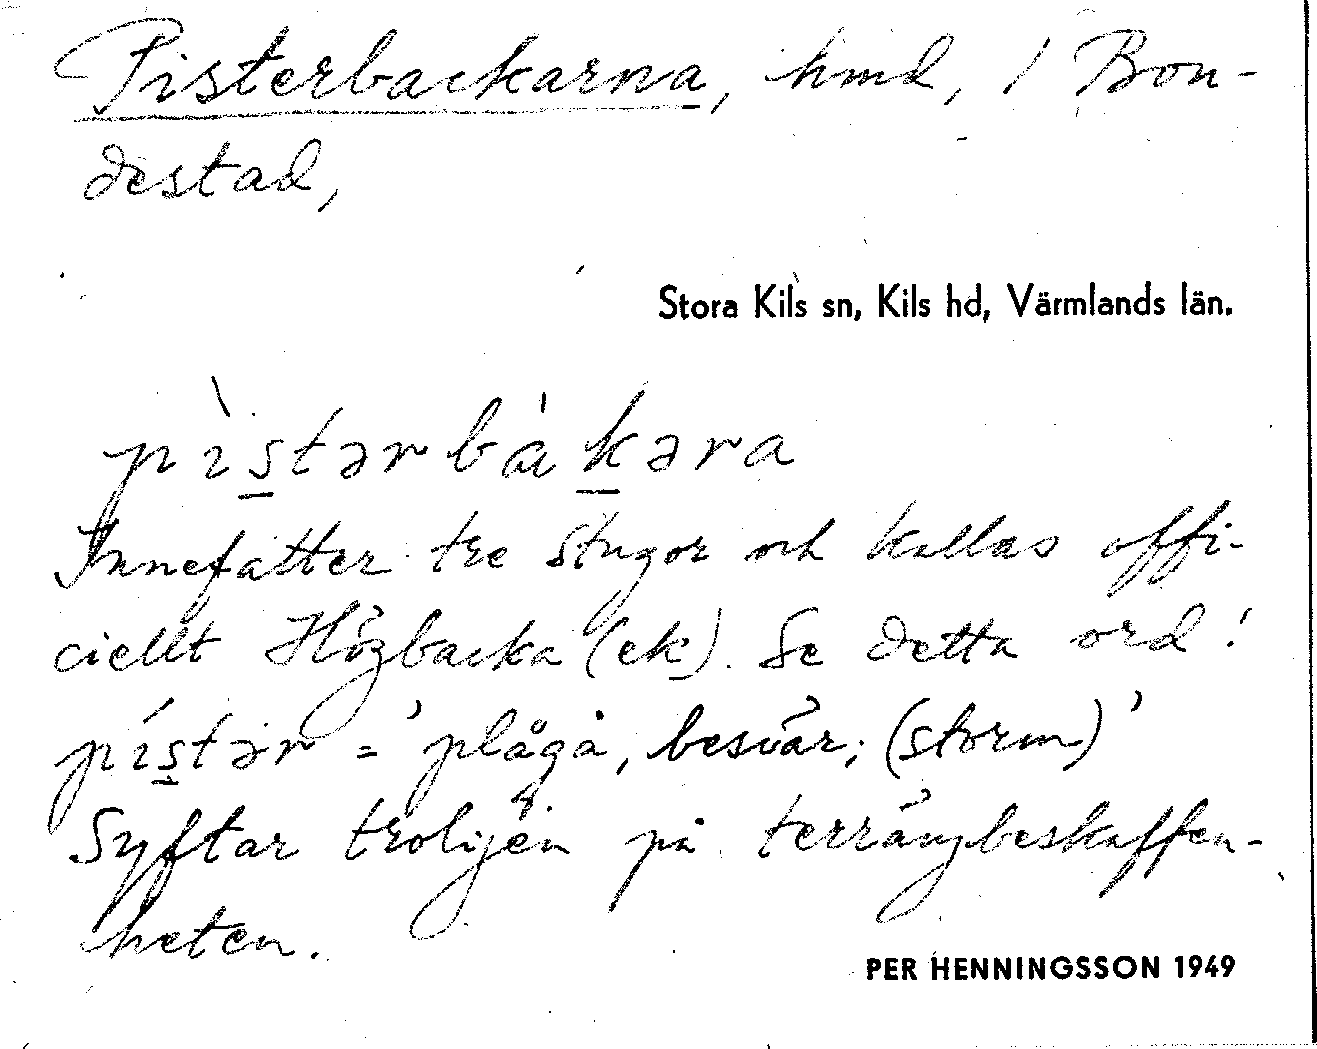 Pisterbackarna, hmd, / Bon-
destad,
Stora Kils sn, Kils hd, Värmlands län.
pìstərbàkəra
Innefattar tre stugor och kallas offi-
ciellt Högbacka (ek). Se detta ord!
pístər = 'plåga, besvär; (storm)'
Syftar troligen på terrängbeskaffen-
heten.
PER HENNINGSSON 1949